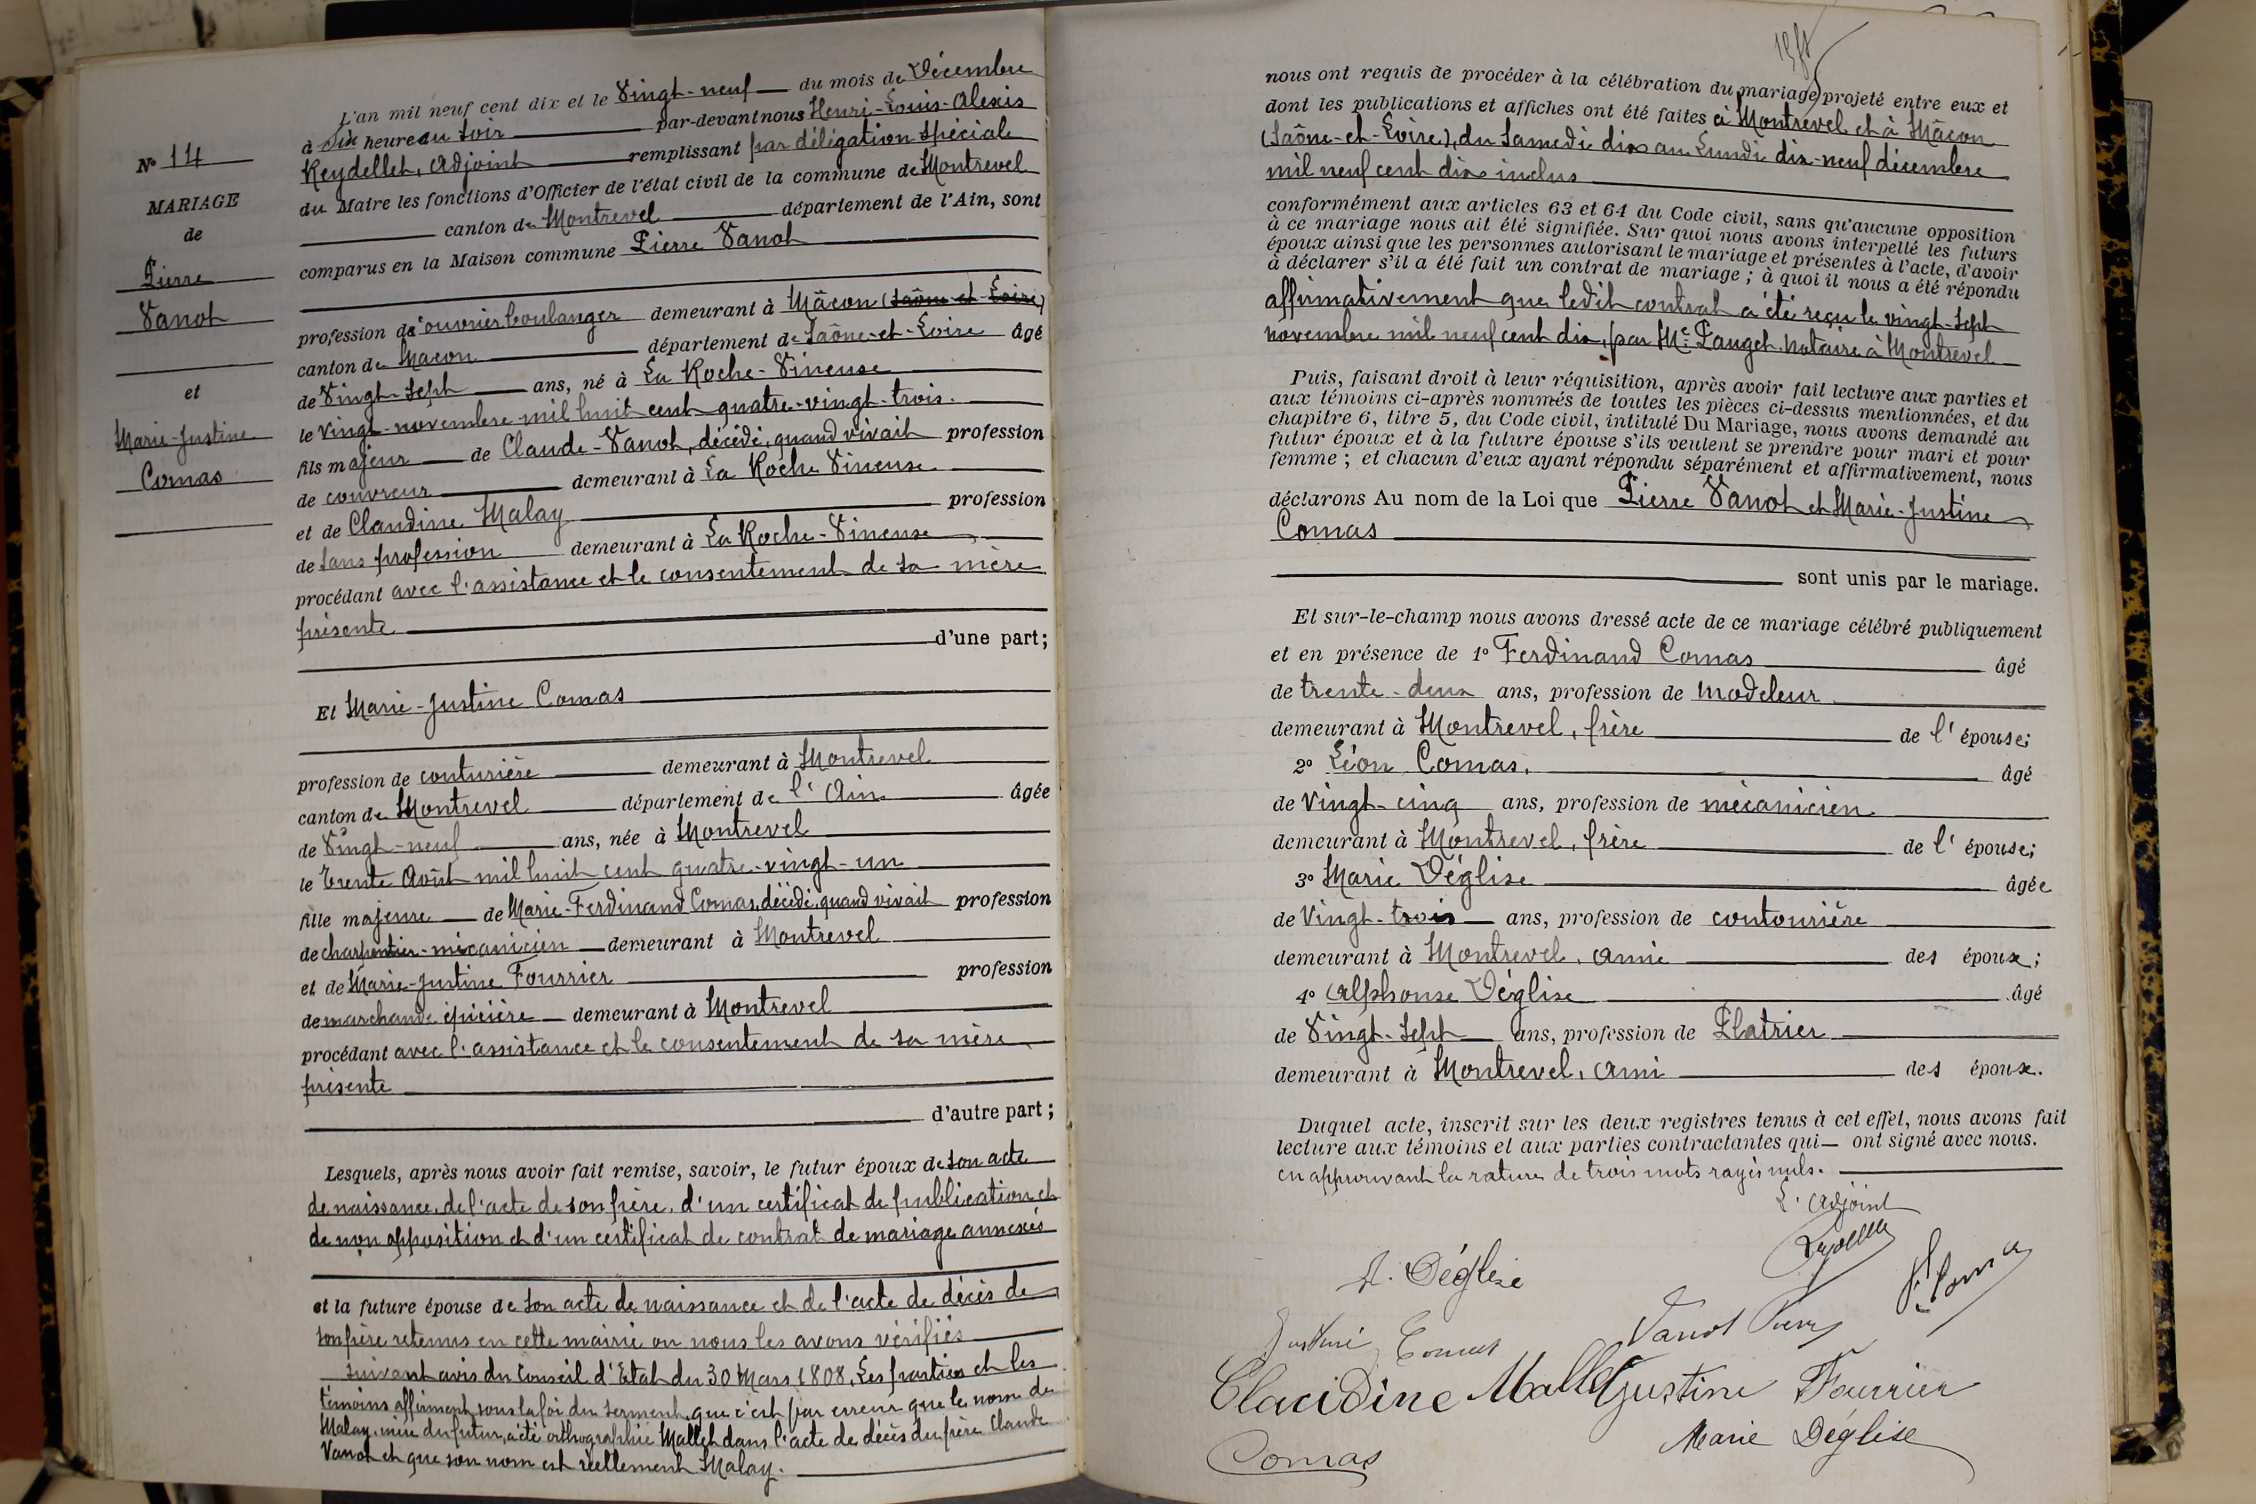 L'an mil neuf cent dix et le Vingt-neuf du mois de Décembre
à Six heure au soir par-devant nous Henri-Louis-Alexis
Keydellet, adjoint remplissant par délégation spéciale
du Maire les fonctions d'Officier de l'état civil de la commune de Montrevel
canton de Montrevel département de l'Ain, sont
comparus en la Maison commune Pierre Vanot
profession de ouvrier boulanger demeurant à Mâcon (Saône-et-Loire)
canton de Macon département de Saône-et-Loire âgé
de Vingt-sept ans, né à La Roche-Vineuse
le vingt-novembre mil huit cent quatre-vingt-trois.
fils majeur de Claude-Vanot, décédé, quand vivait profession
de couvreur demeurant à La Roche Vineuse
et de Claudine Malay profession
de sans profession demeurant à La Roche-Vineuse
procédant avec l'assistance et le consentement de sa mère
présente
d'une part;
Et Marie-Justine Comas
profession de couturière demeurant à Montrevel
canton de Montrevel département de l'Ain âgée
de Vingt-neuf ans, née à Montrevel
le trente Août mil huit cent quatre-vingt-un
fille majeure de Marie-Ferdinand Comas, décédé, quand vivait profession
de charpentier-mécanicien demeurant à Montrevel
et de Marie-Justine Fourrier profession
de marchande épicière demeurant à Montrevel
procédant avec l'assistance et le consentement de sa mère
présente
d'autre part;
Lesquels, après nous avoir fait remise, savoir, le futur époux de son acte
de naissance, de l'acte de son père, d'un certificat de publication et
de non opposition et d'un certificat de contrat de mariage annexés
et la future épouse de son acte de naissance et de l'acte de décès de
son père retenus en cette mairie où nous les avons vérifiés
suivant avis du Conseil d'Etat du 30 Mars 1808. Les parties et les
témoins affirment sous la foi du serment, que c'est par erreur que le nom de
Malay, mère du futur, a été orthographié Mallet dans l'acte de décès du père Claude
Vanot et que son nom est réellement Malay.
N° 14
MARIAGE
de
Pierre
Vanot
et
Marie-Justine
Comas
nous ont requis de procéder à la célébration du mariage projeté entre eux et
dont les publications et affiches ont été faites à Montrevel et à Mâcon
(Saône-et-Loire), du Samedi dix au Lundi dix-neuf décembre
mil neuf cent dix inclus
conformément aux articles 63 et 64 du Code civil, sans qu'aucune opposition
à ce mariage nous ait été signifiée. Sur quoi nous avons interpellé les futurs
époux ainsi que les personnes autorisant le mariage et présentes à l'acte, d'avoir
à déclarer s'il a été fait un contrat de mariage; à quoi il nous a été répondu
affirmativement que ledit contrat a été reçu le vingt-sept
novembre mil neuf cent dix, par Me Pauget, notaire à Montrevel
Puis, faisant droit à leur réquisition, après avoir fait lecture aux parties et
aux témoins ci-après nommés de toutes les pièces ci-dessus mentionnées, et du
chapitre 6, titre 5, du Code civil, intitulé Du Mariage, nous avons demandé au
futur époux et à la future épouse s'ils veulent se prendre pour mari et pour
femme; et chacun d'eux ayant répondu séparément et affirmativement, nous
déclarons Au nom de la Loi que Pierre Vanot et Marie-Justine
Comas
sont unis par le mariage.
Et sur-le-champ nous avons dressé acte de ce mariage célébré publiquement
et en présence de 1° Ferdinand Comas âgé
de trente-deux ans, profession de modeleur
demeurant à Montrevel, frère de l'épouse;
2° Léon Comas, âgé
de vingt-cinq ans, profession de mécanicien
demeurant à Montrevel, frère de l'épouse;
3° Marie Déglise âgée
de Vingt-trois ans, profession de couturière
demeurant à Montrevel, amie des époux;
4° Alphonse Déglise âgé
de Vingt-sept ans, profession de Platrier
demeurant à Montrevel, ami des époux.
Duquel acte, inscrit sur les deux registres tenus à cet effet, nous avons fait
lecture aux témoins et aux parties contractantes qui ont signé avec nous.
en approuvant la rature de trois mots rayés nuls.
L'adjoint
A. Déglise
F. Comas
Justine Comas
Vanot Pierre
Claudine Mallet
Justine Fourrier
Marie Déglise
Comas